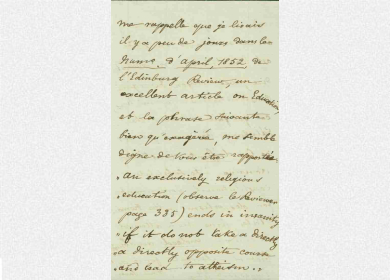 me rappelle que je lisais
il y a peu de jours dans le
d'april, 1852 de
l'Edinburg Review, un
excellent article on Education
et la phrase suivante
bien qu'exagérée, me semble
digne de vous être rapportée
"An exclusively religious
education (observe le Reviewer
page 335) ends in insanity
"if it do not take a directly
"a directly opposite course
"and lead to atheism."